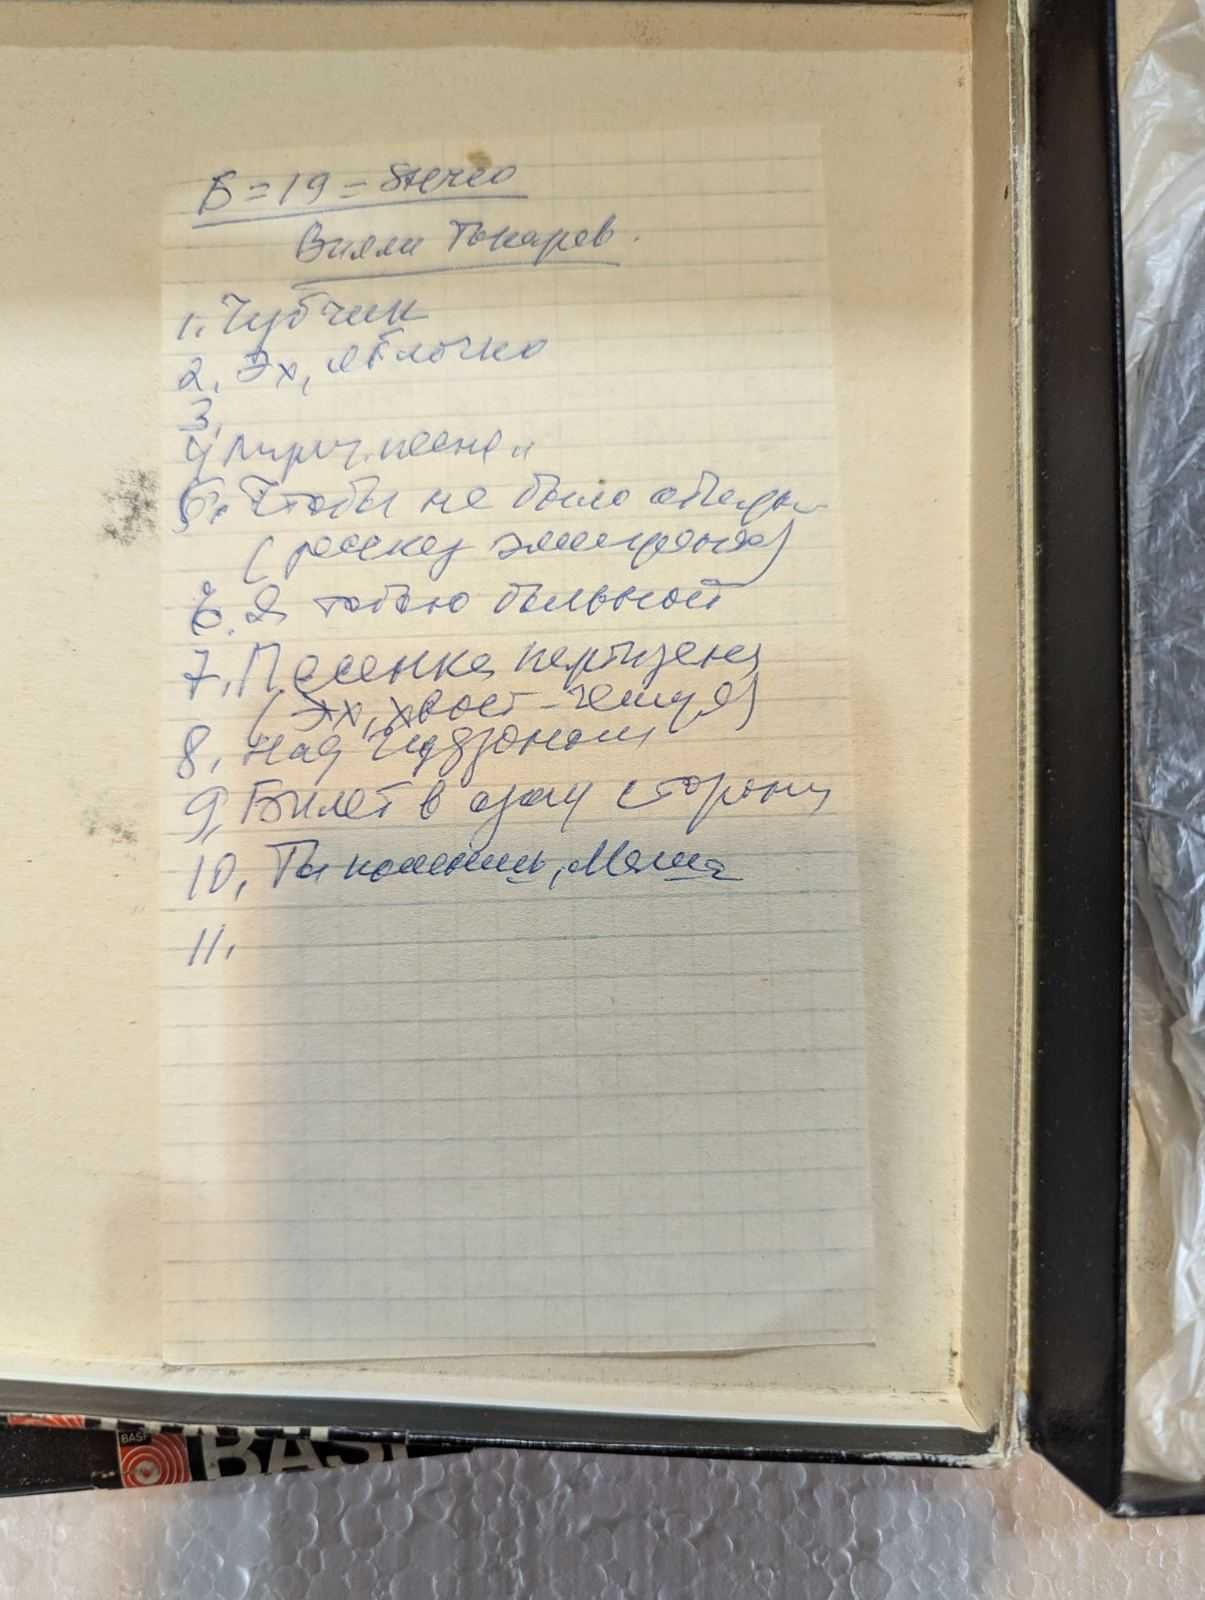 Б=19=Stereo
Вилли Токарев.
1. Чубчик
2. Эх, яблочко
3.
4 лирич. песня
5. Чтобы не было обидно
(рассказ эмигранта)
6. Я тобою больной
7. Песенка партизана
(Эх, хвост-чешуя)
8. Над Гудзоном
9. Билет в одну сторону
10. Ты помнишь, Маша
11.
BASF
BASF